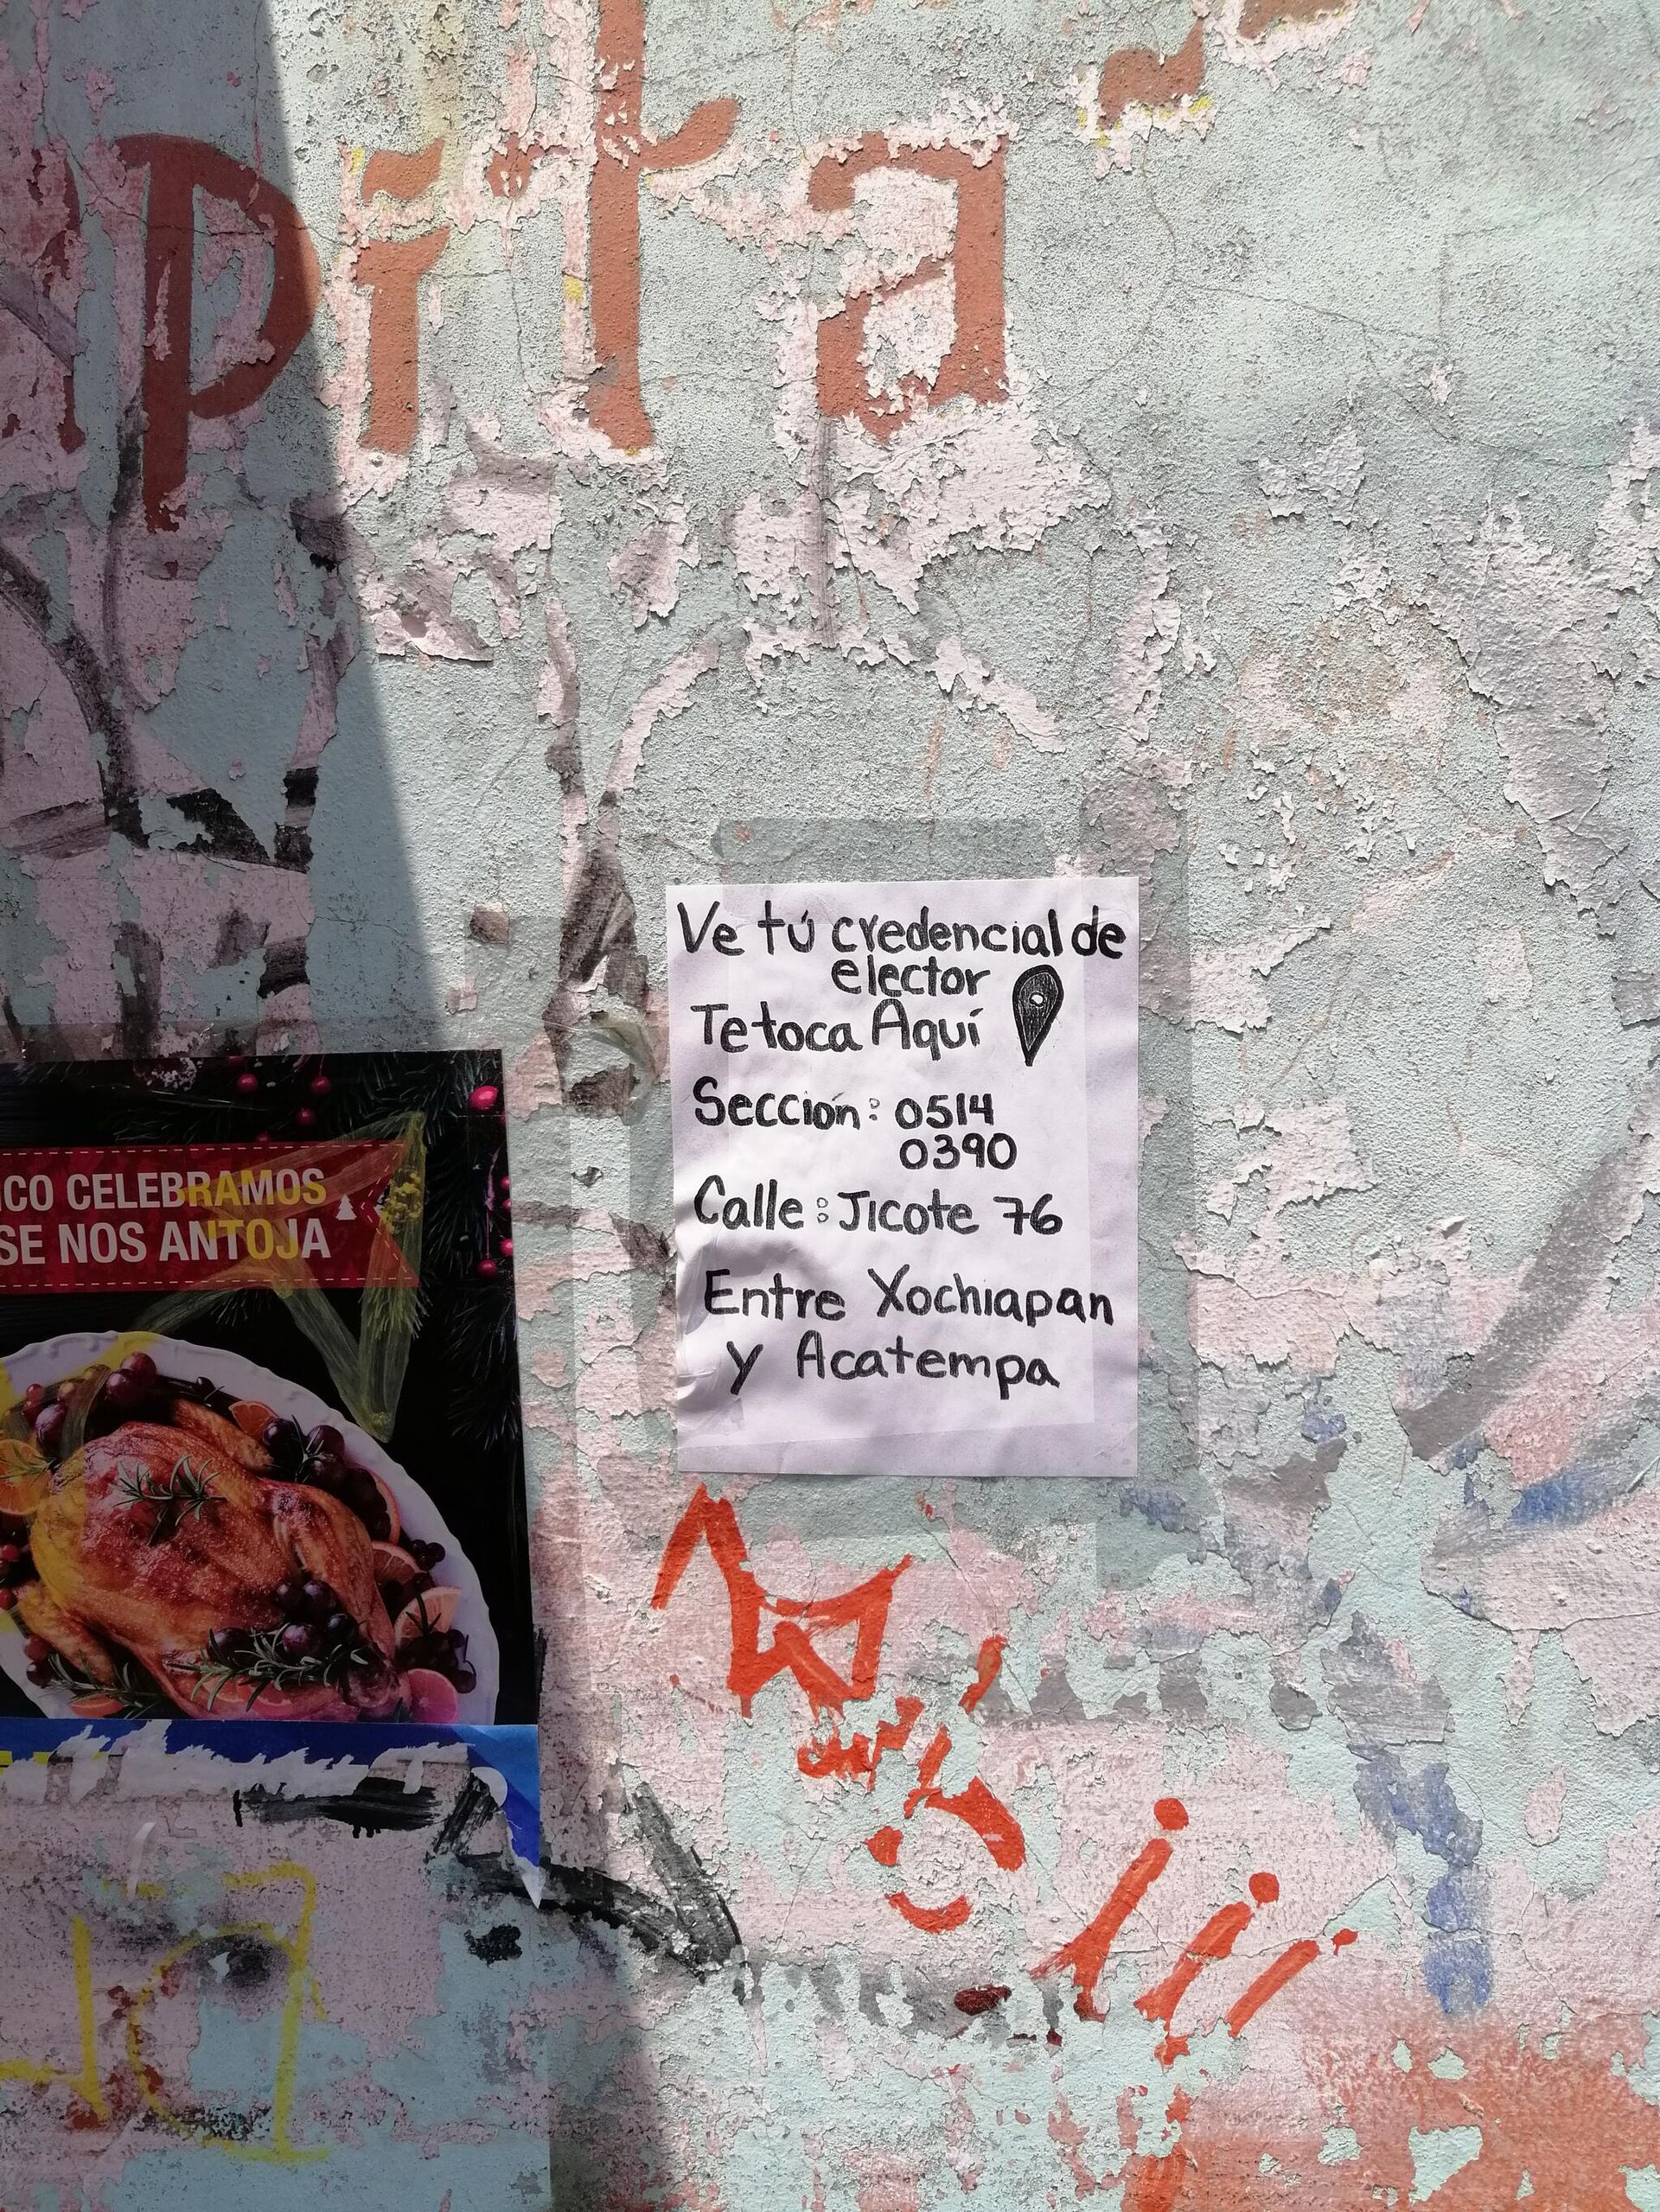 pita
Ve tú credencial de
elector
Te toca Aquí
Sección: 0514
0390
Calle: Jicote 76
Entre Xochiapan
y Acatempa
ICO CELEBRAMOS
SE NOS ANTOJA